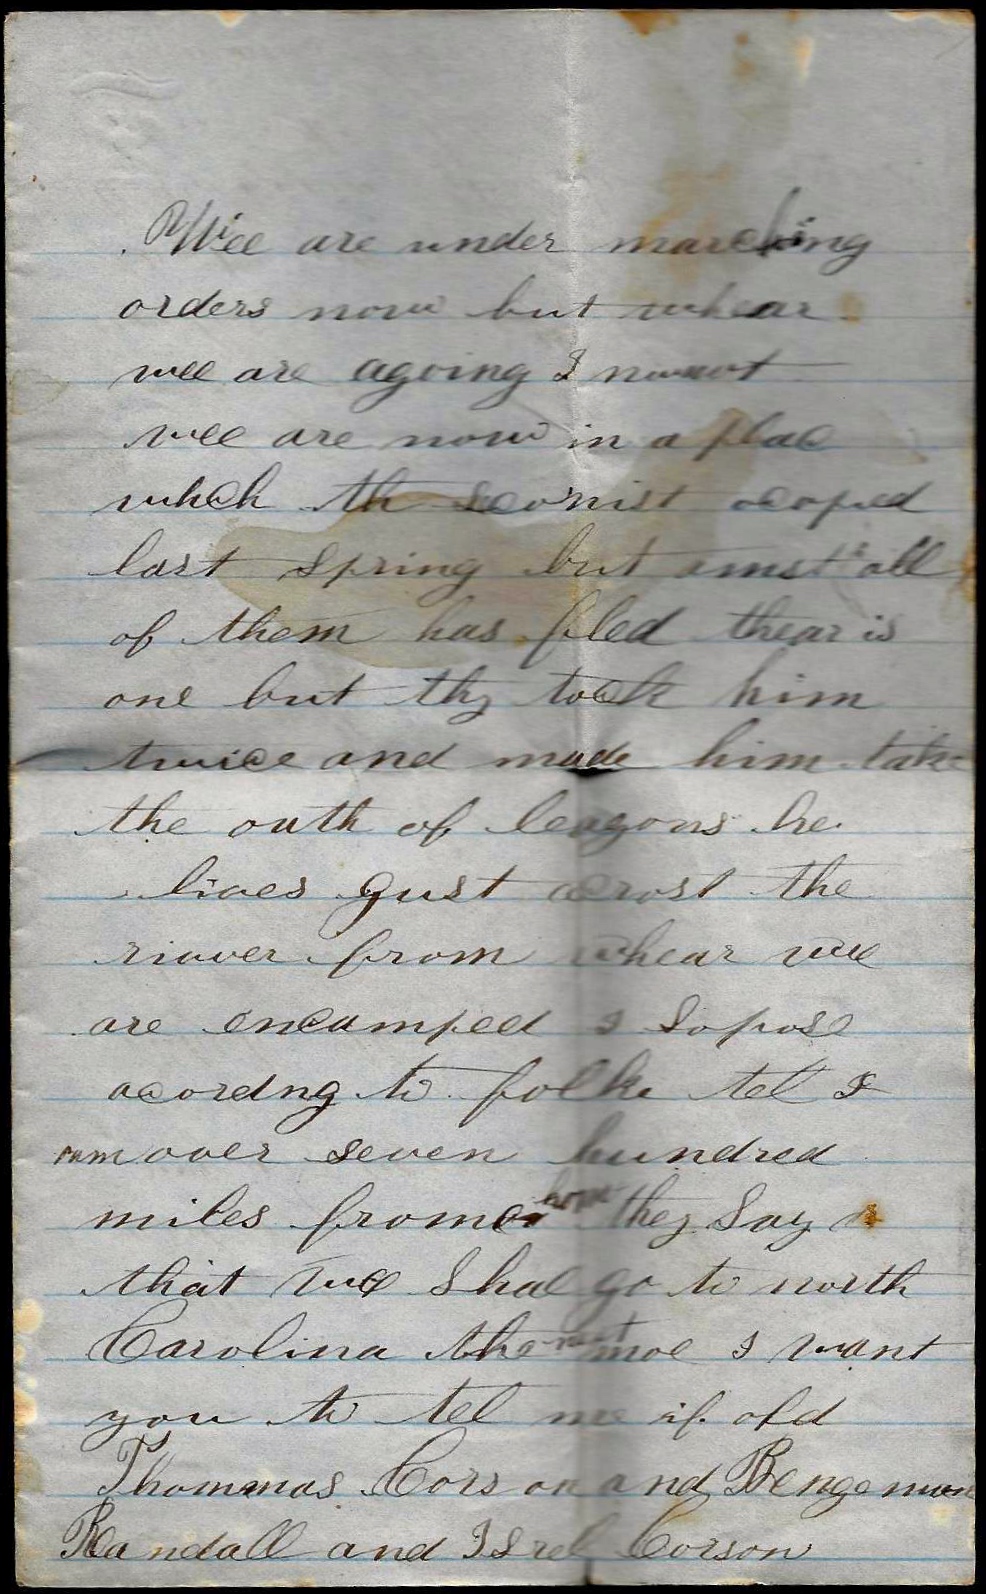 Wee are under marching
orders now but whear
wee are agoing I nownot
wee are now in a plac
whch th seconist ocopied
last spring but amst all
of them has fled thear is
one but thy took him
twice and made him take
the outh of leagons he
lives gust acrost the
riaver from whear wee
are encamped I sopose
acordng to folks tel I
am over seven hundred
miles from home they say
that wee shal go to north
Carolina the next move I want
you to tel me if old
Thommas Corson and Bengeman
Randall and Isrel Corson